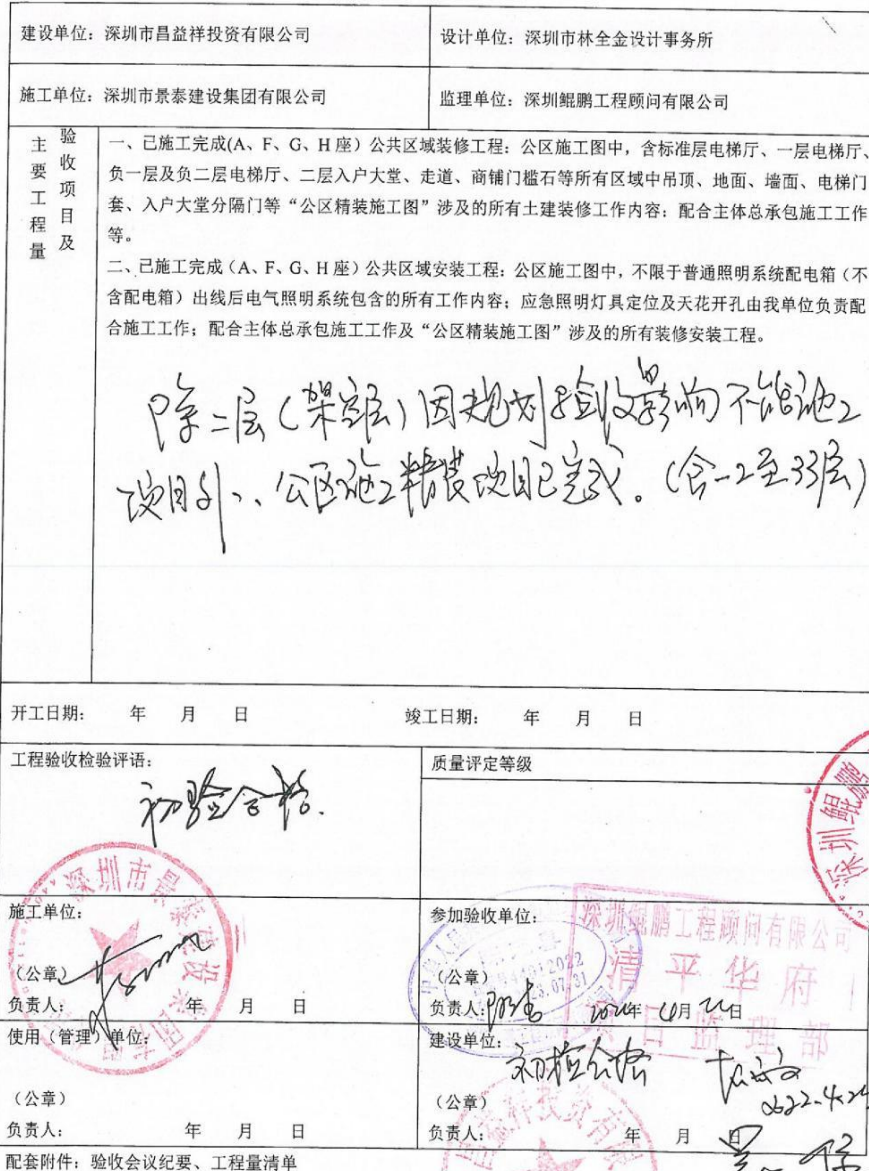 建设单位：深圳市昌益祥投资有限公司
设计单位：深圳市林全金设计事务所
施工单位：深圳市景泰建设集团有限公司
监理单位：深圳鲲鹏工程顾问有限公司
验收项目及
主要工程量
一、已施工完成(A、F、G、H座）公共区域装修工程：公区施工图中，含标准层电梯厅、一层电梯厅、
负一层及负二层电梯厅、二层入户大堂、走道、商铺门槛石等所有区域中吊顶、地面、墙面、电梯门
套、入户大堂分隔门等“公区精装施工图”涉及的所有土建装修工作内容；配合主体总承包施工工作
等。
二、已施工完成（A、F、G、H座）公共区域安装工程：公区施工图中，不限于普通照明系统配电箱（不
含配电箱）出线后电气照明系统包含的所有工作内容；应急照明灯具定位及天花开孔由我单位负责配
合施工工作；配合主体总承包施工工作及“公区精装施工图”涉及的所有装修安装工程。
除二层（架空层）因规划验收影响不能施工
项目外、公区施工精装项目已完成。（含-2至33层）
开工日期： 年 月 日
竣工日期： 年 月 日
工程验收检验评语：
初验合格.
质量评定等级
深圳鲲鹏
深圳市景泰建设集团有限公司
施工单位：
（公章）
负责人： 年 月 日
参加验收单位：
深圳鲲鹏工程顾问有限公司
清平华府
项目监理部
（公章）
负责人： 年 月 日
使用（管理）单位：
（公章）
负责人： 年 月 日
建设单位：
初验合格
2022.4.24
（公章）
负责人： 年 月 日
配套附件：验收会议纪要、工程量清单